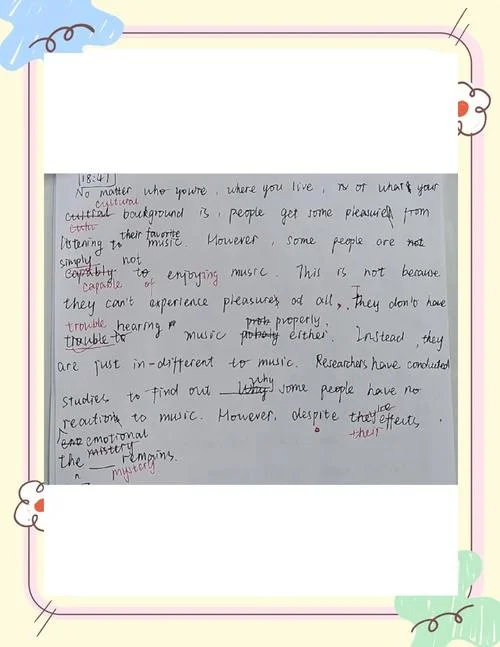 18:41
No matter who you're, where you live, or what your
cultural
cultral background is, people get some pleasure from
their favorite
listening to music. However, some people are not
simply not
capably to enjoying music. This is not because
capable of
they can't experience pleasures at all, They don't have
trouble hearing properly.
trouble to music either. Instead, they
are just in-different to music. Researchers have conducted
why
studies to find out why some people have no
reaction to music. However, despite they're effects,
emotional their
mistery
the remains.
mystery